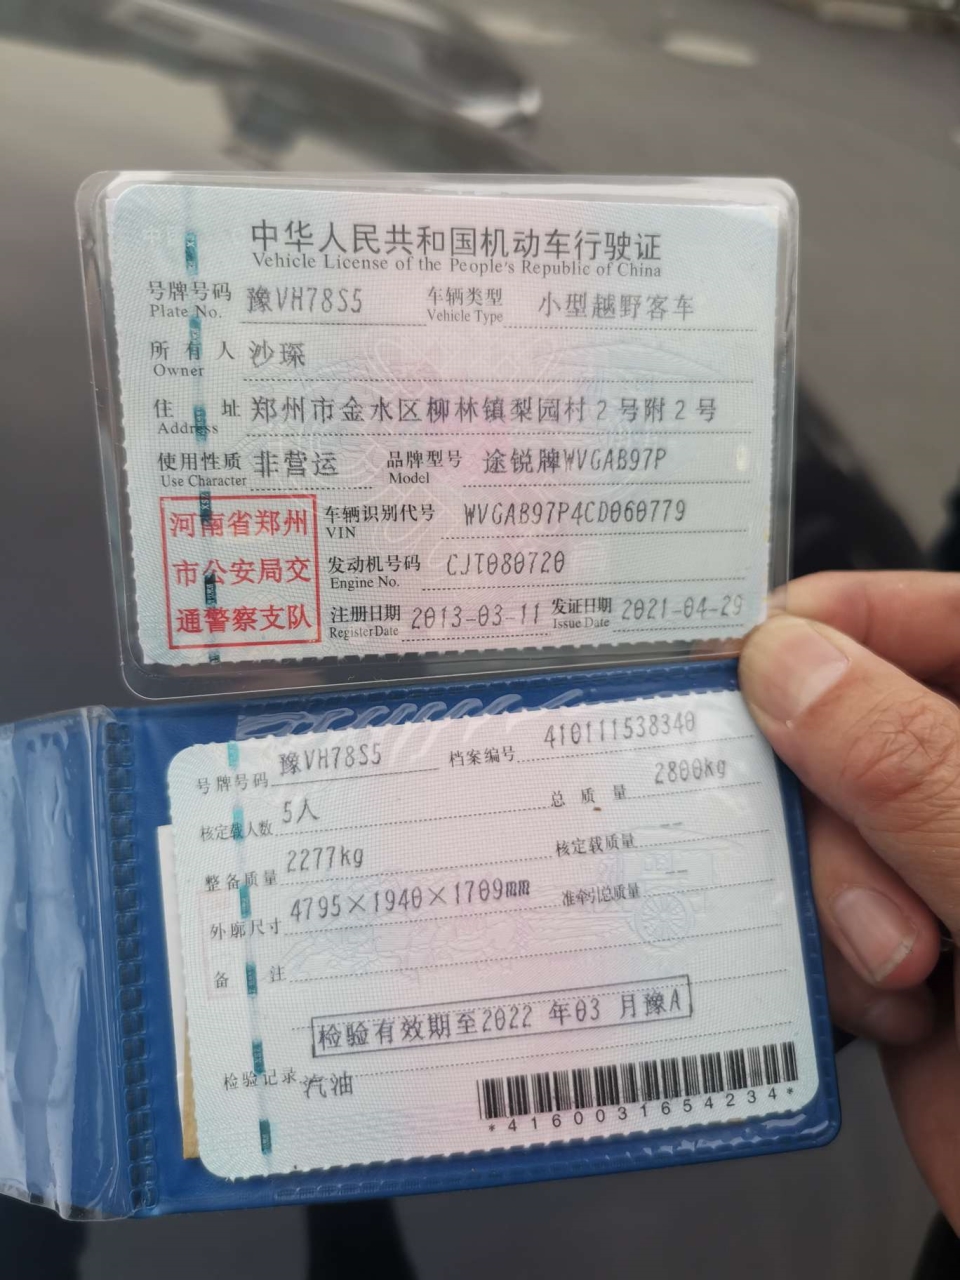 中华人民共和国机动车行驶证
Vehicle License of the People's Republic of China
号牌号码 豫VH78S5 车辆类型 小型越野客车
Plate No. Vehicle Type
所有人 沙琛
Owner
住址 郑州市金水区柳林镇梨园村2号附2号
Address
使用性质 非营运 品牌型号 途锐牌WVGAB97P
Use Character Model
河南省郑州
市公安局交
通警察支队
车辆识别代号 WVGAB97P4CD060779
VIN
发动机号码 CJT080720
Engine No.
注册日期 2013-03-11 发证日期 2021-04-29
Register Date Issue Date
号牌号码 豫VH78S5 档案编号 410111538340
核定载人数 5人 总质量 2800kg
整备质量 2277kg 核定载质量 --
外廓尺寸 4795×1940×1709mm 准牵引总质量 --
备注
检验有效期至2022年03月豫A
检验记录 汽油
*4160031654234*